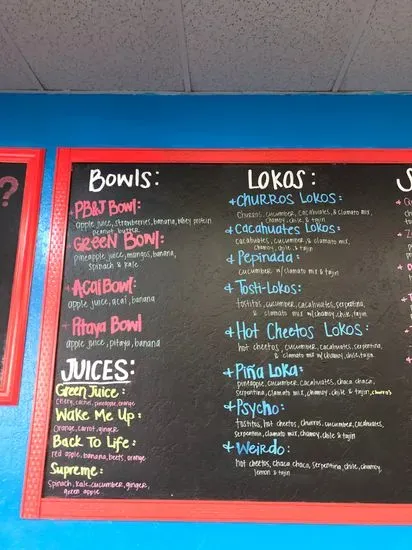 ?
BOWLS:
PB&J BOWL:
apple juice, strawberries, banana, whey protein
peanut butter
GREEN BOWL:
pineapple juice, mangos, banana,
spinach & kale
ACAI BOWL:
apple juice, acai, banana
PITAYA BOWL
apple juice, pitaya, banana
JUICES:
Green Juice:
celery, cactus, pineapple, orange
Wake Me Up:
orange, carrot, ginger
Back To Life:
red apple, banana, beets, orange
Supreme:
Spinach, kale, cucumber, ginger,
green apple
LOKOS:
CHURROS LOKOS:
Churros, cucumber, cacahuates, & clamato mix,
chamoy, chile & tajin
Cacahuates LOKOS:
cacahuates, cucumber, & clamato mix,
chamoy, chile & tajin
Pepinada
cucumber w/ clamato mix & tajin
Tosti-Lokos:
tostitos, cucumber, cacahuates, serpentina,
& clamato mix w/ chamoy, chile, tajin
Hot Cheetos LOKOS:
hot cheetos, cucumber, cacahuates, serpentina,
& clamato mix w/ chamoy, chile, tajin
Piña Loka:
pineapple, cucumber, cacahuates, chaca chaca,
serpentina, clamato mix, chamoy, chile & tajin, churros
Psycho:
tostitos, hot cheetos, churros, cucumber, cacahuates,
serpentina, clamato mix, chamoy, chile & tajin
Weirdo:
hot cheetos, chaca chaca, serpentina, chile, chamoy,
lemon & tajin
S